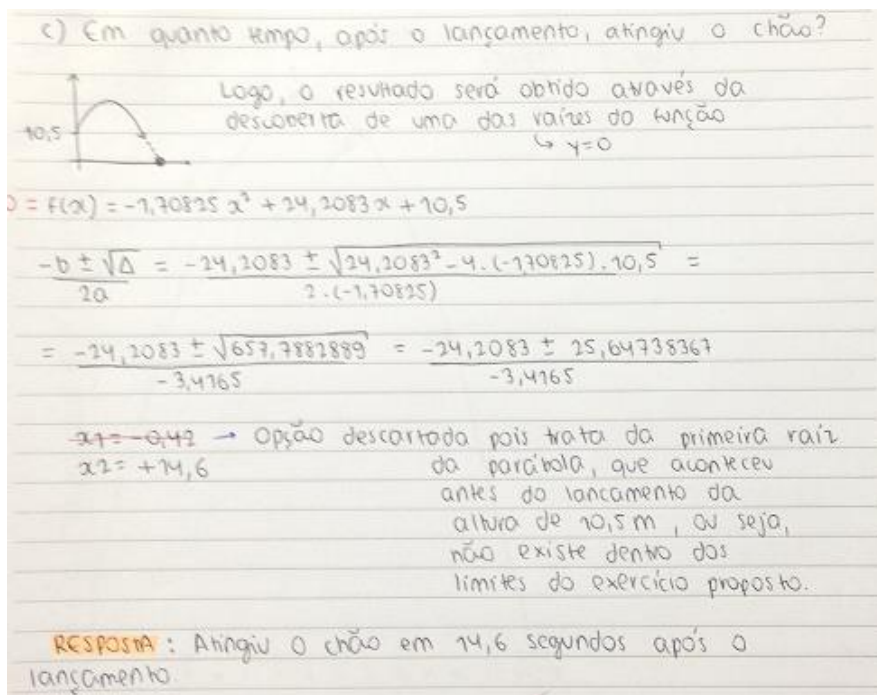 c) Em quanto tempo, após o lançamento, atingiu o chão?
Logo, o resultado será obtido através da
10,5
descoberta de uma das raízes da função
↳ y=0
0 = f(x) = -1,70825 x² + 24,2083x + 10,5
-b ± √Δ / 2a = -24,2083 ± √24,2083² - 4.(-1,70825).10,5 / 2.(-1,70825) =
= -24,2083 ± √657,7882889 / -3,4165 = -24,2083 ± 25,64738367 / -3,4165
x1 = -0,42 → Opção descartada pois trata da primeira raíz
x2 = +14,6 da parábola, que aconteceu
antes do lancamento da
altura de 10,5 m, ou seja,
não existe dentro dos
limites do exercício proposto.
RESPOSTA: Atingiu o chão em 14,6 segundos após o
lançamento.